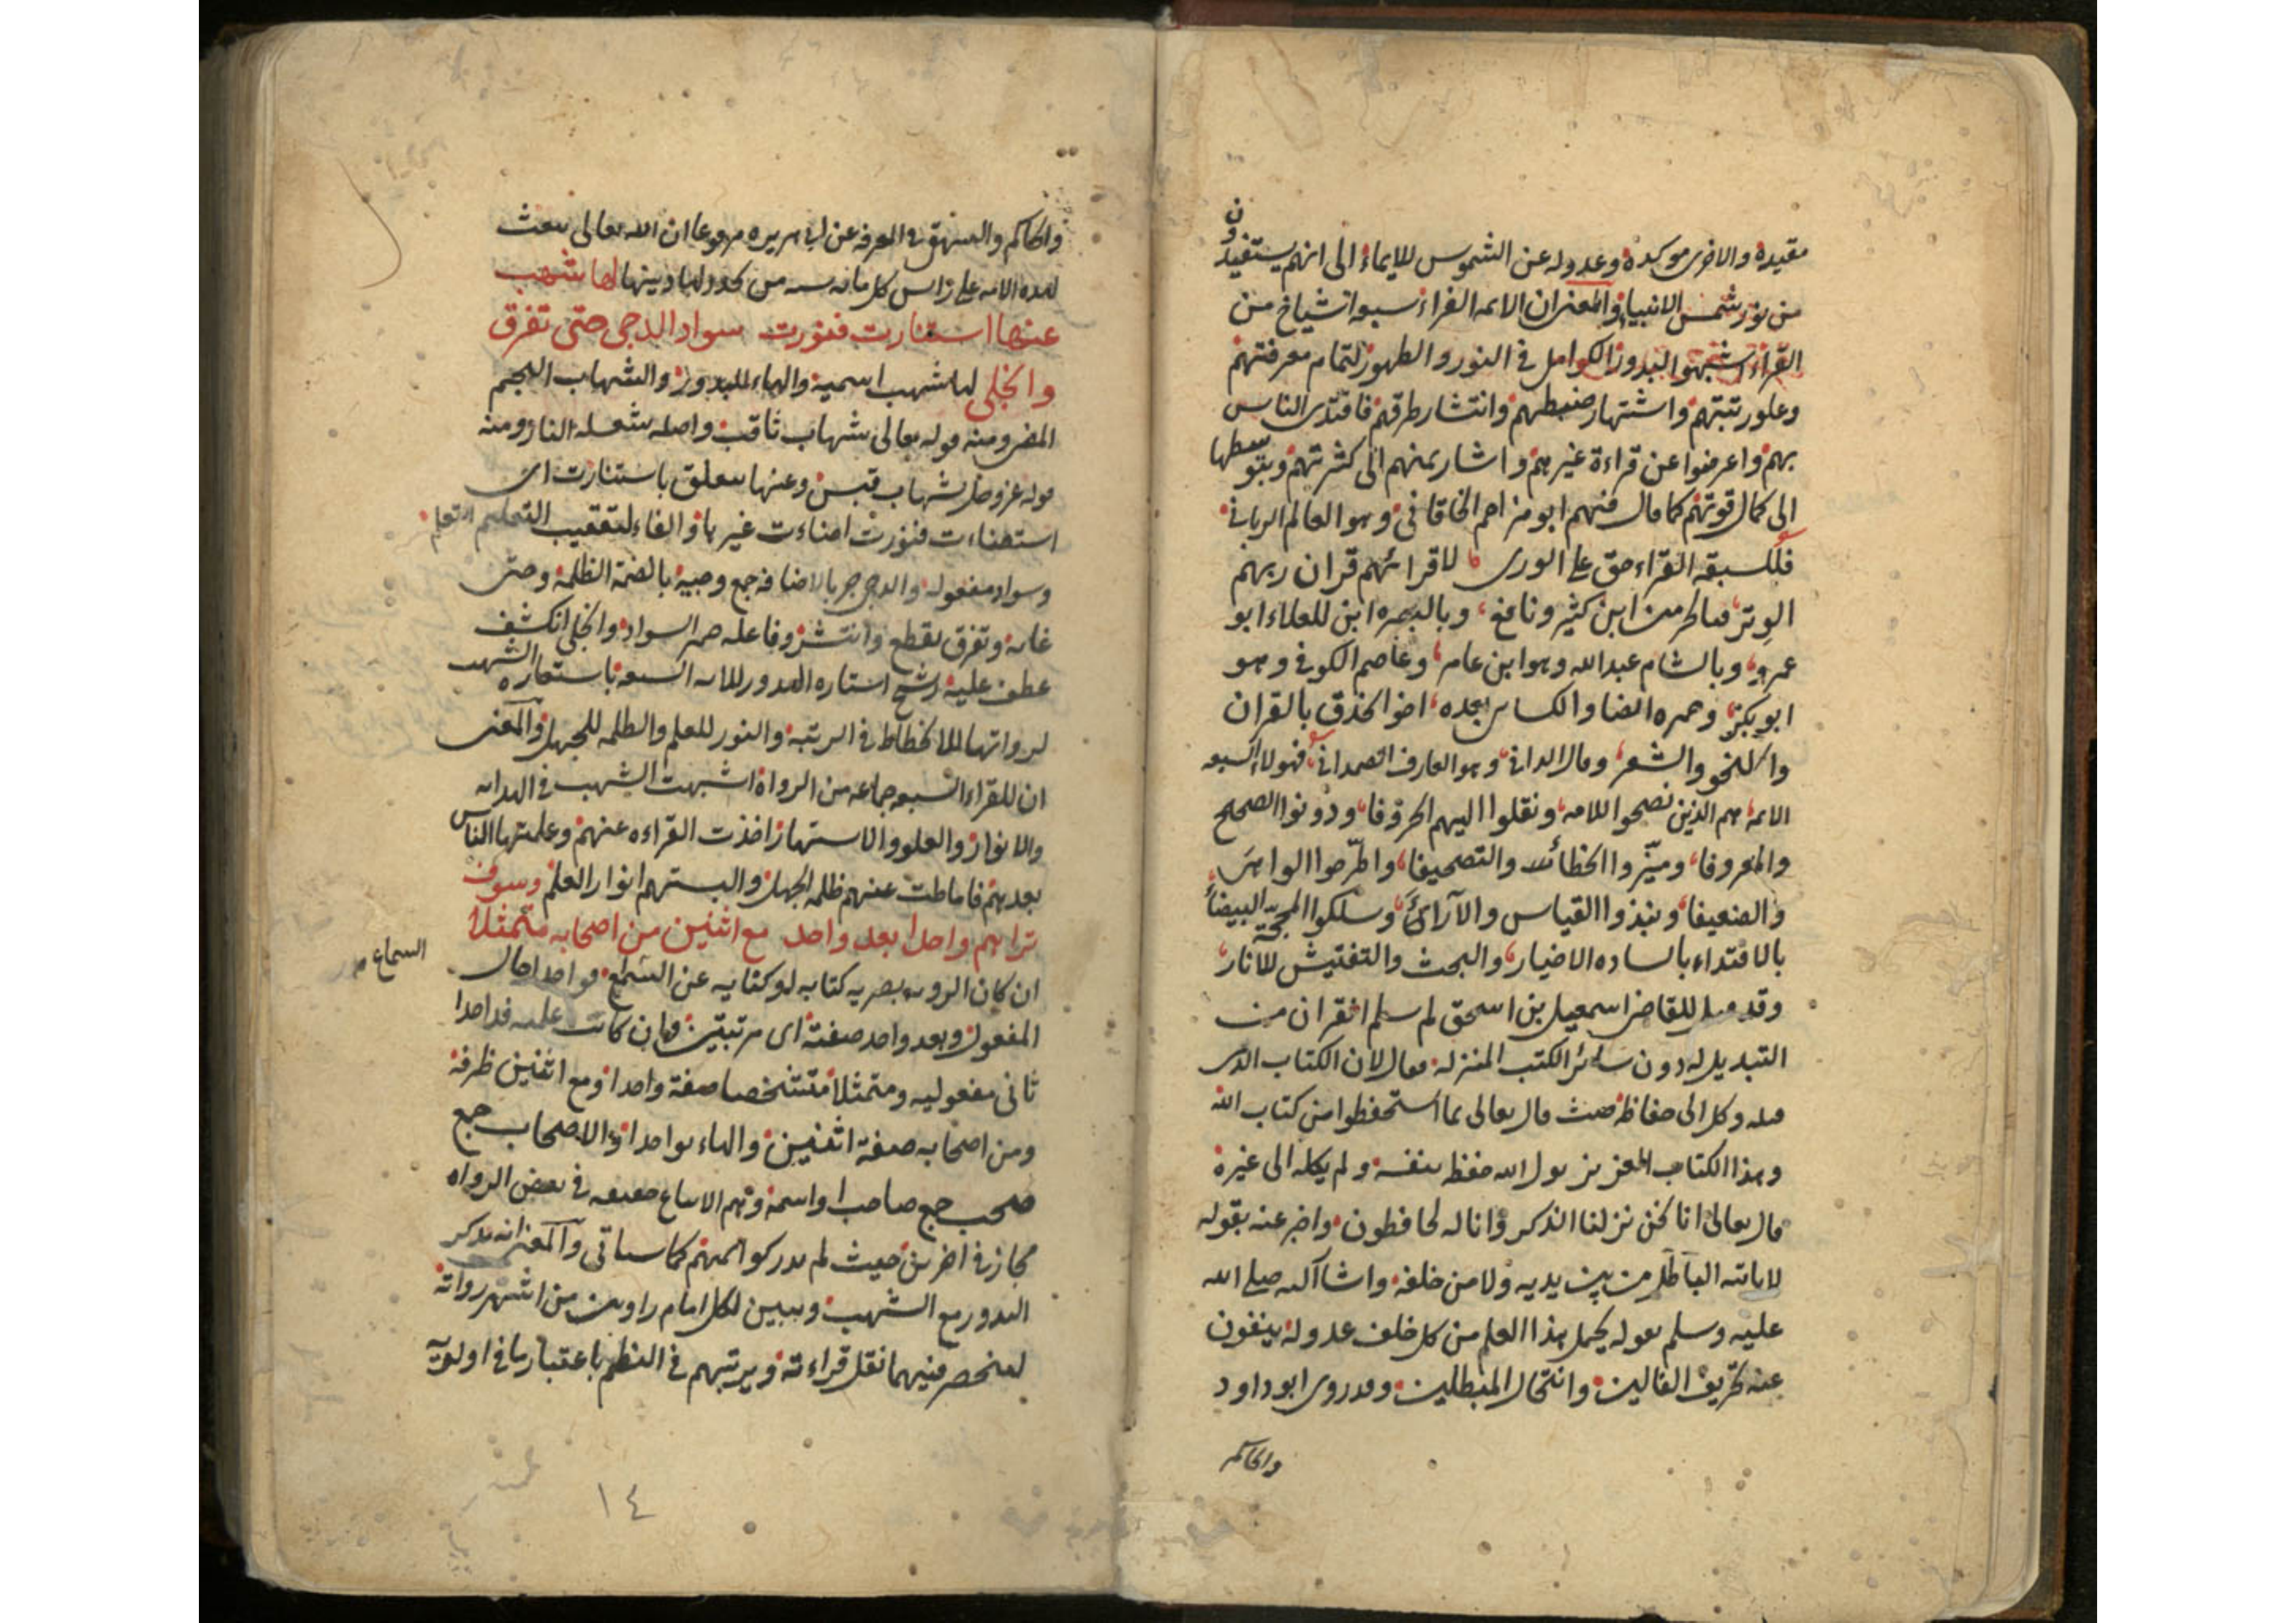 مقيدة والاخرى موكدة وعدوله عن الشموس للايماء الى انهم يستفيدون
من نور شمس الانبياء والمعنى ان الائمه القراء سبعه اشياخ من
القراء اشبهوا البدور الكوامل في النور والظهور لتمام معرفتهم
وعلو رتبتهم واشتهار ضبطهم وانتشار طرقهم فاقتدى الناس
بهم واعرضوا عن قراءة غيرهم واشار بمنهم الى كثرتهم وبتوسطها
الى كمال قوتهم كما قال فيهم ابو مزاحم الخاقاني وهو العالم الرباني
فللسبعة القراء حق على الورى لاقرائهم قران ربهم
الوتر فبالحرمين ابن كثير ونافع وبالبصره ابن العلاء ابو
عمرو وبالشام عبد الله وهو ابن عامر وعاصم الكوفي وهو
ابو بكر وحمزه ايضا والكسائي بعده اخو الحذق بالقران
والنحو والشعر وقال الداني وهو العارف الصمداني فهولاء السبعه
الائمه هم الذين نصحوا للامه ونقلوا اليهم الحروفا ودونوا الصحيح
والمعروفا وميزوا الخطأ والتصحيفا واطرحوا الواهي
والضعيفا ونبذوا القياس والآراء وسلكوا المحجة البيضاء
بالاقتداء بالساده الاخيار والبحث والتفتيش للآثار
وقد قيل للقاضي اسمعيل بن اسحق لم سلم القران من
التبديل له دون سائر الكتب المنزله فقال لان الكتاب الذي
قبله وكل الى حفاظه حيث قال تعالى بما استحفظوا من كتاب الله
وهذا الكتاب العزيز تولى الله حفظه بنفسه ولم يكله الى غيره
قال تعالى انا نحن نزلنا الذكر وانا له لحافظون واخبر عنه بقوله
لا ياتيه الباطل من بين يديه ولا من خلفه واشار اليه صلى الله
عليه وسلم بقوله يحمل هذا العلم من كل خلف عدوله ينفون
عنه تحريف الغالين وانتحال المبطلين وقد روى ابو داود
والحاكم
والحاكم والبيهقي في المعرفه عن ابي هريره مرفوعا ان الله تعالى يبعث
لهذه الامه على راس كل مائه سنه من يجدد لها دينها لها شهب
عنها استنارت فنورت سواد الدجى حتى تفرق
وانجلى لها شهب اسمية والهاء للبدور والشهاب النجم
المضي ومنه قوله تعالى شهاب ثاقب واصله شعله النار ومنه
قوله عز وجل بشهاب قبس وعنها متعلق باستنارت اى
استضاءت فنورت اضاءت غيرها والفاء لتعقيب التعليم التعلم
وسواد مفعوله والدجى جر بالاضافه جمع دجية بالضمة الظلمة وحتى
غاية وتفرق تقطع وانتشر وفاعله ضمير السواد وانجلى انكشف
عطف عليه رشح استعاره البدور للائمه السبعه باستعاره الشهب
لرواتها للانحطاط في الرتبه والنور للعلم والظلمه للجهل والمعنى
ان للقراء السبعه جماعه من الرواة اشبهت الشهب في الهدايه
والانوار والعلو والاشتهار اخذت القراءه عنهم وعلمتها الناس
بعدهم فاماطت عنهم ظلمه الجهل والبستهم انوار العلم وسوف
تراهم واحدا بعد واحد مع اثنين من اصحابه متمثلا
ان كان الرويه بصريه كتابه او كتابيه عن السماع فواحدا حال
السماع
المفعول وبعد واحد صفته اى مرتبين وان كانت علميه فواحدا
ثاني مفعوليه ومتمثلا متشخصا صفة واحدا ومع اثنين ظرفه
ومن اصحابه صفة اثنين والهاء لواحدا والاصحاب جمع
صحب جمع صاحب او اسمه وهم الاتباع حقيقه في بعض الرواه
مجاز في اخرين حيث لم يدركوا ائمتهم كما سياتي والمعنى انه يذكر
البدور مع الشهب ويبين لكل امام راويين من اشهر رواته
لينحصر فيهما نقل قراءته ويرتبهم في النظم باعتبار ما في اولويه
١٤